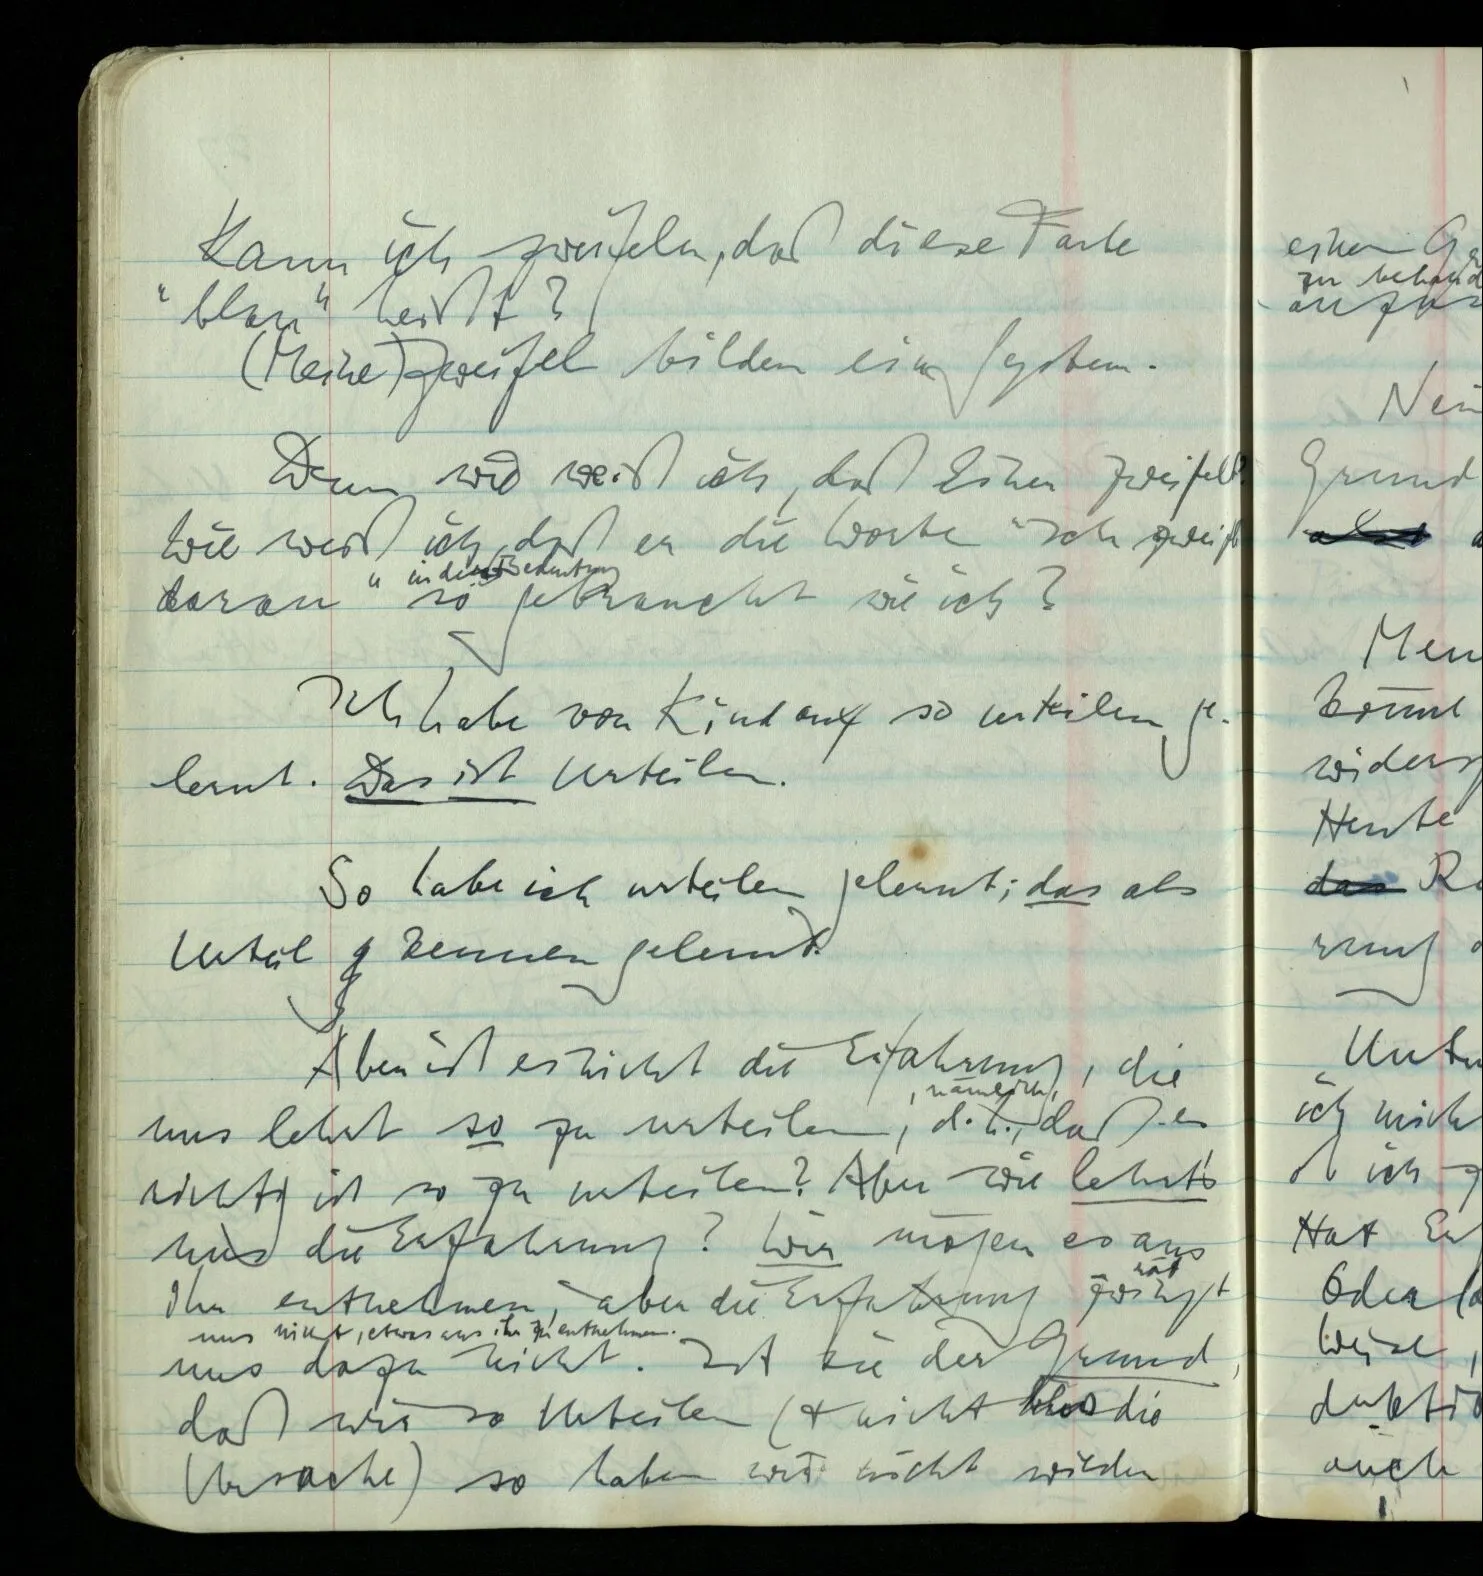 Kann ich zweifeln, daß diese Farbe
"blau" heißt?
(Meine) Zweifel bilden ein System.
Denn wie weiß ich, daß Einer zweifelt?
Wie weiß ich, daß er die Worte "Ich zweifle
in der Bedeutung
daran" so gebraucht wie ich?
Ich habe von Kind auf so urteilen ge-
lernt. Das ist Urteilen.
So habe ich urteilen gelernt; das als
Urteil kennen gelernt.
Aber ist es nicht die Erfahrung, die
, nämlich,
uns lehrt so zu urteilen, d.h., daß es
richtig ist so zu urteilen? Aber wie lehrt's
uns die Erfahrung? Wir mögen es aus
rät
ihr entnehmen, aber die Erfahrung zwingt
uns nicht, etwas aus ihr zu entnehmen.
uns dazu nicht. Ist sie der Grund,
daß wir so urteilen (& nicht blos die
Ursache) so haben wir nicht wieder
einen
zu
Grund
ich
ob ich
Hat
Heute
das
auch